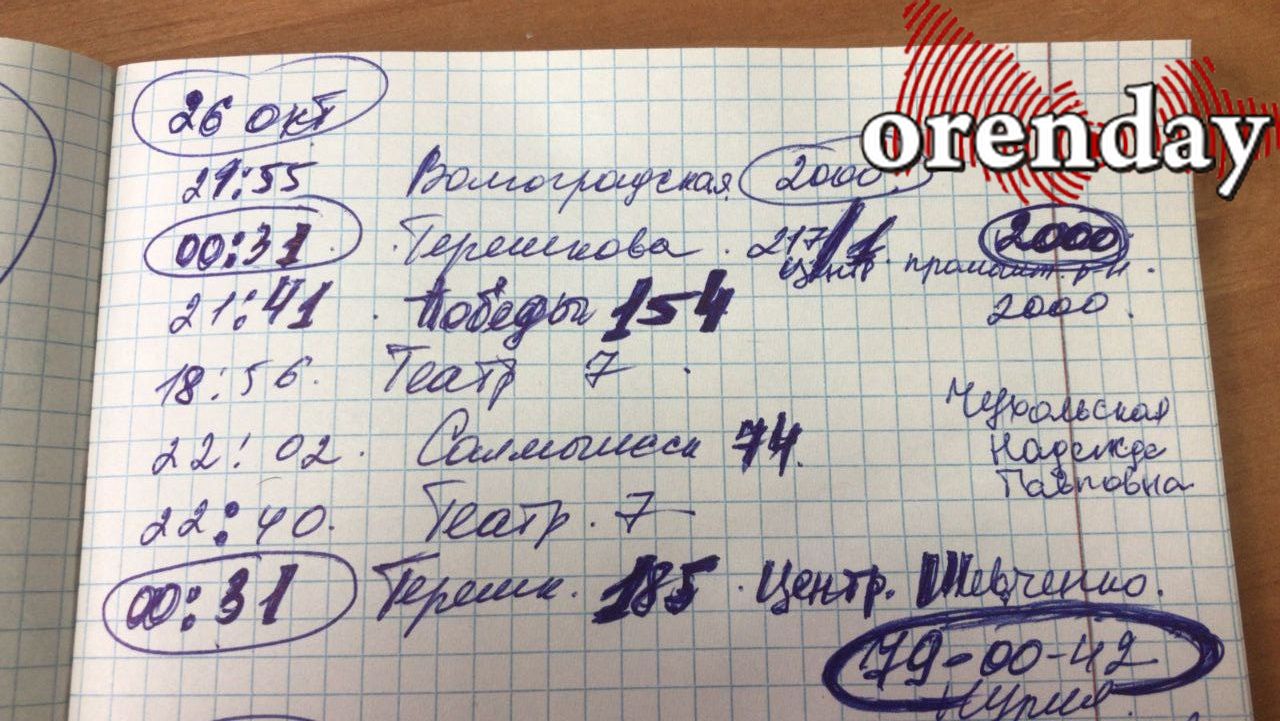 orenday
26 окт
21:55 Волгоградская 2000.
00:31 Терешкова. 217/1 2000
Центр промышл. р-н.
21:41 Победы 154 2000.
18:56. Театр 7.
22:02. Салмышск 74.
Надежда
Павловна
22:40. Театр. 7
00:31 Терешк. 185. Центр. Шевченко.
79-00-42
Нурия.